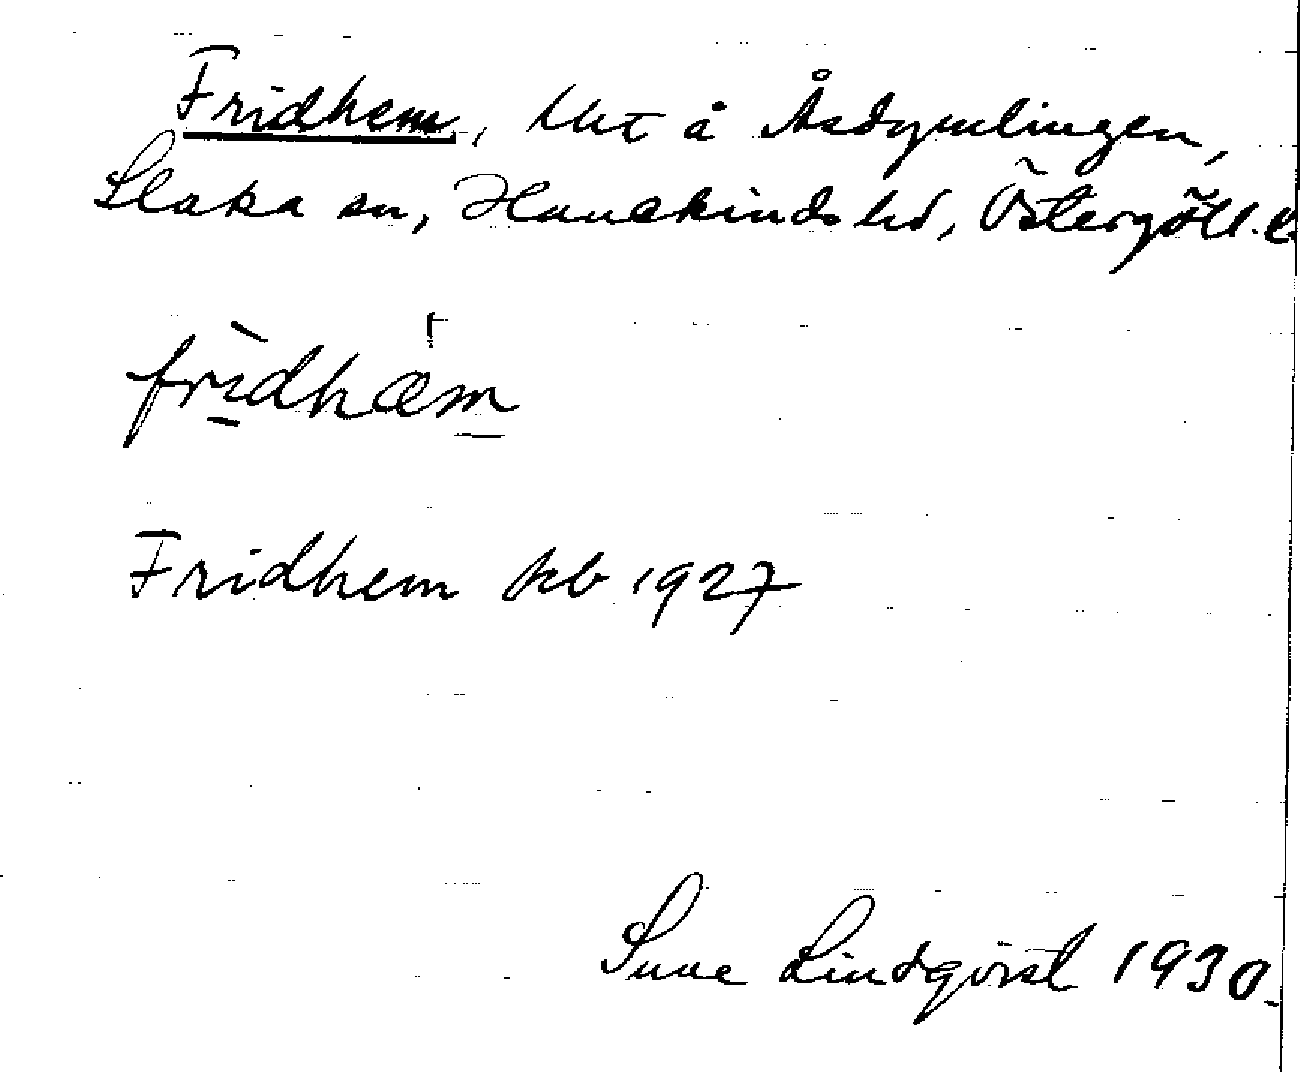 Fridhem, Uut å Åsdymlingen,
Slaka sn, Hanekinds hd, Östergötl. l.
fridhæm
Fridhem kb 1927
Sune Lindqvist 1930.